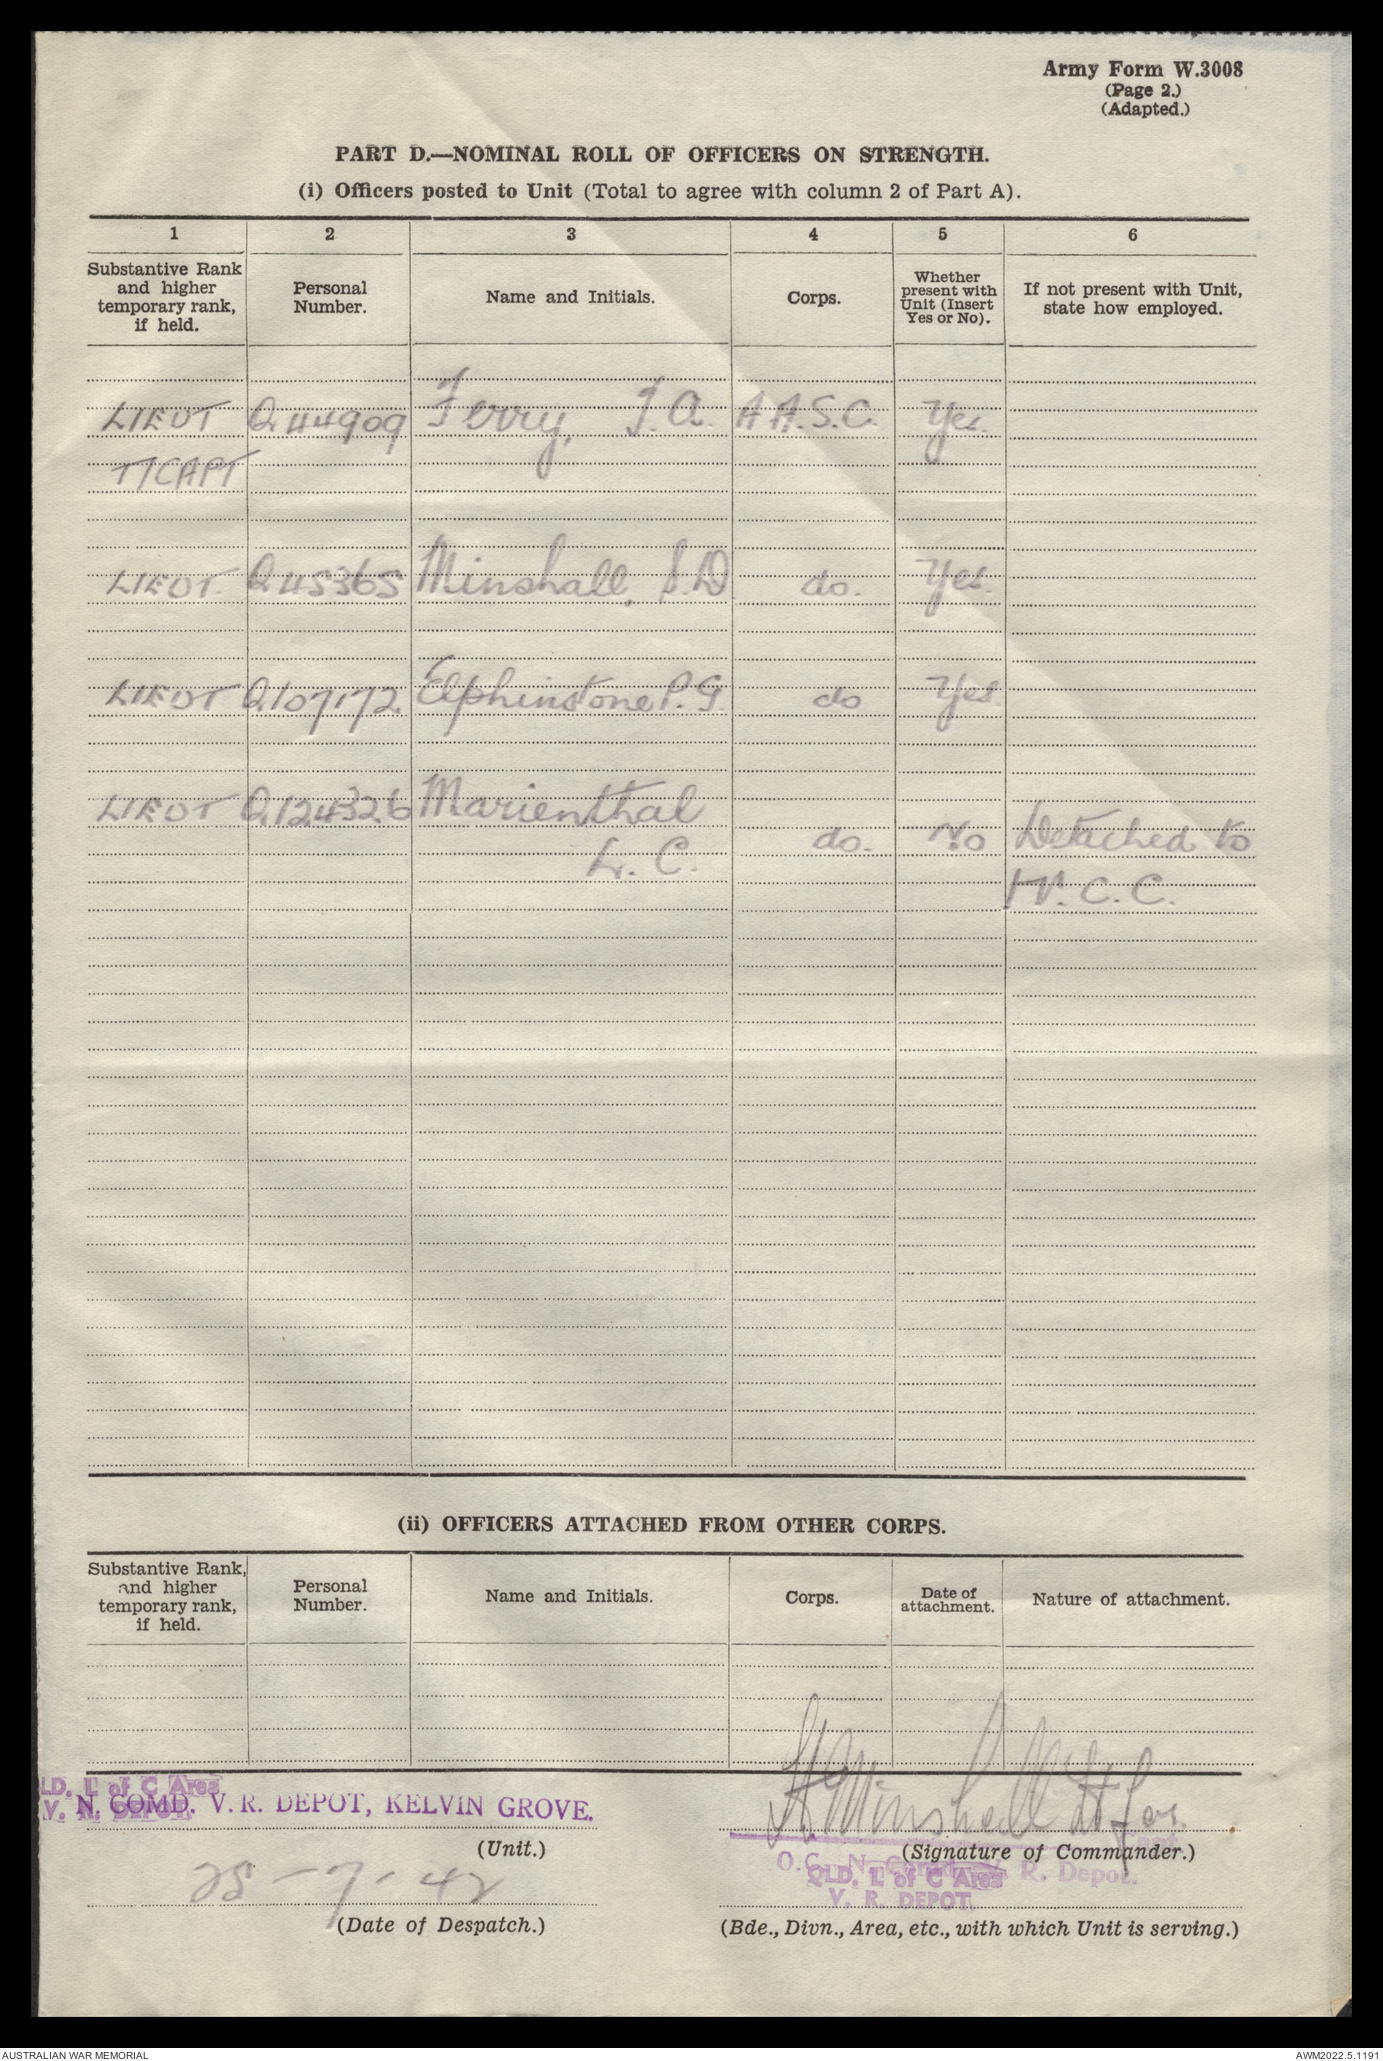 Army Form W.3008
(Page 2.)
(Adapted.)
PART D.—NOMINAL ROLL OF OFFICERS ON STRENGTH.
(i) Officers posted to Unit (Total to agree with column 2 of Part A).
1 2 3 4 5 6
Substantive Rank and higher temporary rank, if held. Personal Number. Name and Initials. Corps. Whether present with Unit (Insert Yes or No). If not present with Unit, state how employed.
LIEUT Q44909 Ferry, J.A. A.A.S.C. Yes.
T/CAPT
LIEUT. Q45365 Minshall, S.D do. Yes.
LIEUT Q107172 Elphinstone P.G. do Yes.
LIEUT Q124326 Marienthal
L. C. do. No Detached to
W.C.C.
(ii) OFFICERS ATTACHED FROM OTHER CORPS.
Substantive Rank, and higher temporary rank, if held. Personal Number. Name and Initials. Corps. Date of attachment. Nature of attachment.
LD. L of C Area
V. R. DEPOT.
N. COMD. V. R. DEPOT, KELVIN GROVE.
(Unit.)
Minshall Lt for
(Signature of Commander.)
O.C. N. Comd. V. R. Depot.
QLD. L of C Area
V. R. DEPOT.
25-7-42
(Date of Despatch.)
(Bde., Divn., Area, etc., with which Unit is serving.)
AUSTRALIAN WAR MEMORIAL
AWM2022.5.1191